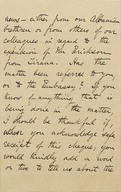 news – either from our Albanian
brethren or from others of our
colleagues in regard to the
expulsion of Mr Erickson
from Tirana. Has the
matter been referred to you
or to the Embassy? If you
know of anything that is
being done in the matter
I should be thankful if,
when you acknowledge safe
receipt of this cheque, you
would kindly add a word
or two to tell us about the